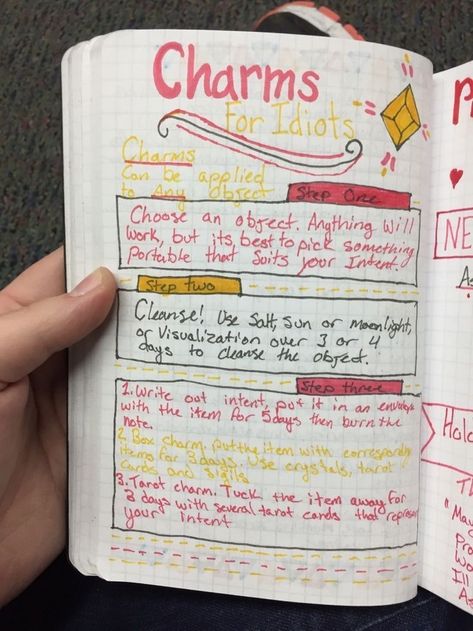 Charms
For Idiots
Charms
Can be applied
to Any Object
Step One
Choose an object. Anything will
work, but its, best to pick something
Portable that Suits your Intent.
Step two
Cleanse! Use Salt, Sun or Moonlight,
or Visualization over 3 or 4
days to cleanse the object.
Step three
1. Write out intent, put it in an envelope
with the item for 5 days then burn the
note.
2. Box charm. Put the item with
items for 3 days. Use crystals, tarot
cards and
3. Tarot charm. Tuck the item away for
3 days with several tarot cards that represent
your intent
P
NE
As
Hol
Th
"Ma
Pro
Wo
Ill
As